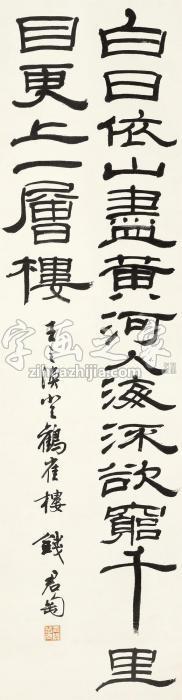 白日依山盡黃河入海流欲窮千里
目更上一層樓
王之渙登鶴雀樓 錢君匋
字画之家
zihuazhijia.com